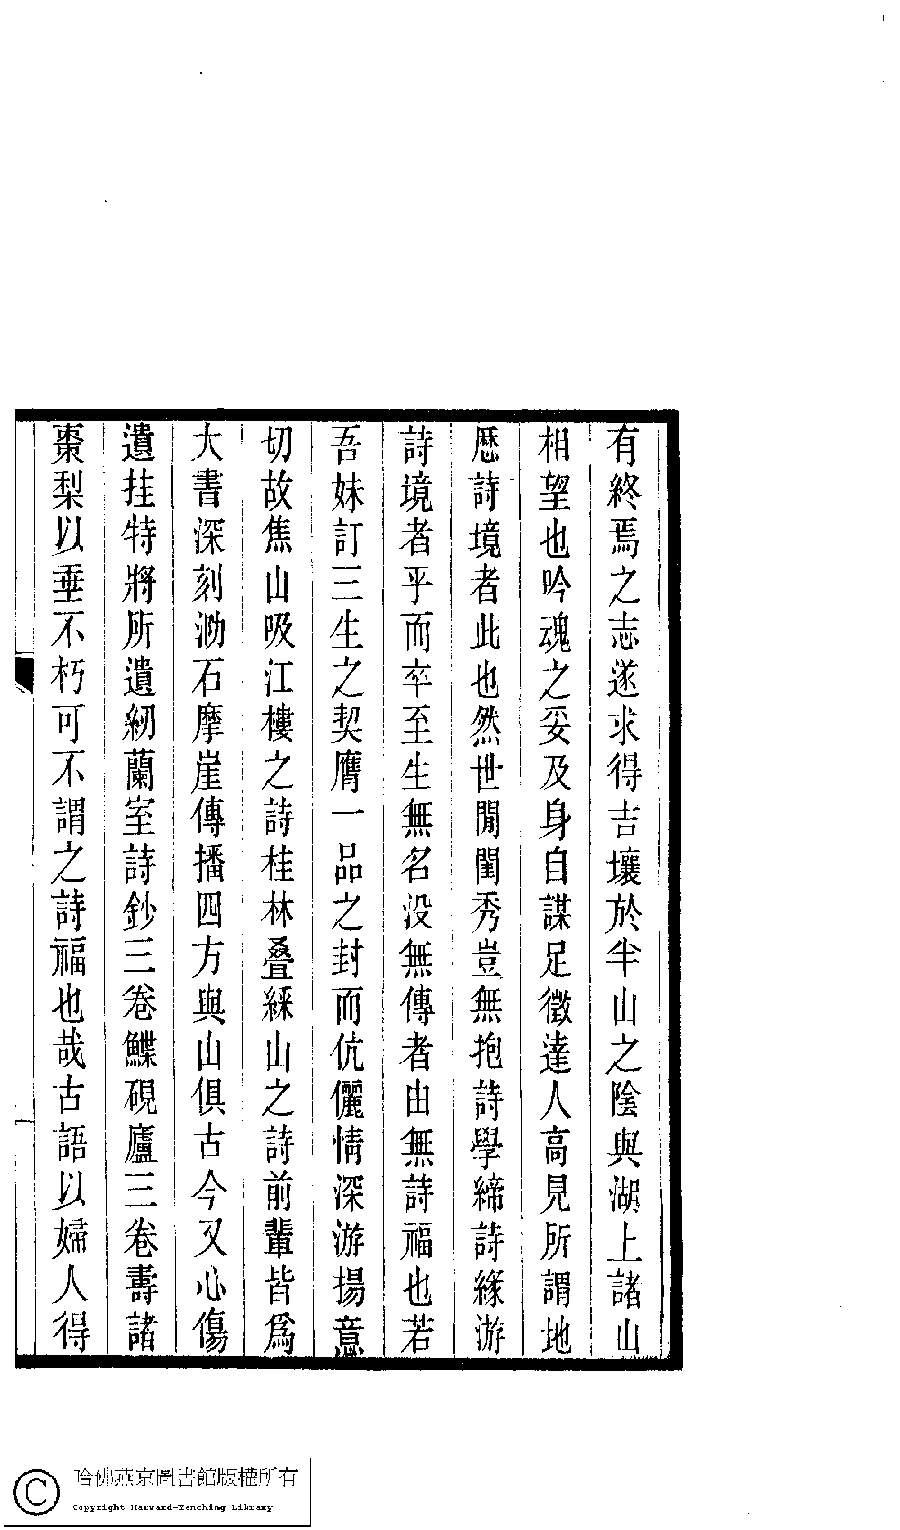 有終焉之志遂求得吉壤於半山之陰與湖上諸山
相望也吟魂之妥及身自謀足徵達人高見所謂地
歷詩境者此也然世閒閨秀豈無抱詩學締詩緣游
詩境者乎而卒至生無名没無傳者由無詩福也若
吾妹訂三生之契膺一品之封而伉儷情深游揚意
切故焦山吸江樓之詩桂林疊綵山之詩前輩皆爲
大書深刻泐石摩崖傳播四方與山俱古今又心傷
遺挂特將所遺紉蘭室詩鈔三卷鰈硯廬三卷壽諸
棗梨以垂不朽可不謂之詩福也哉古語以婦人得
一
哈佛燕京圖書館版權所有
Copyright Harvard-Yenching Library